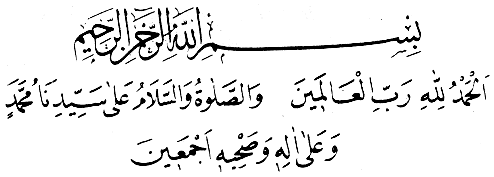 بِسْمِ اللهِ الرَّحْمٰنِ الرَّحِيمِ
اَلْحَمْدُ لِلّٰهِ رَبِّ الْعَالَمِينَ وَالصَّلٰوةُ وَالسَّلَامُ عَلٰى سَيِّدِنَا مُحَمَّدٍ
وَعَلٰى اٰلِهِ وَصَحْبِهِ اَجْمَعِينَ